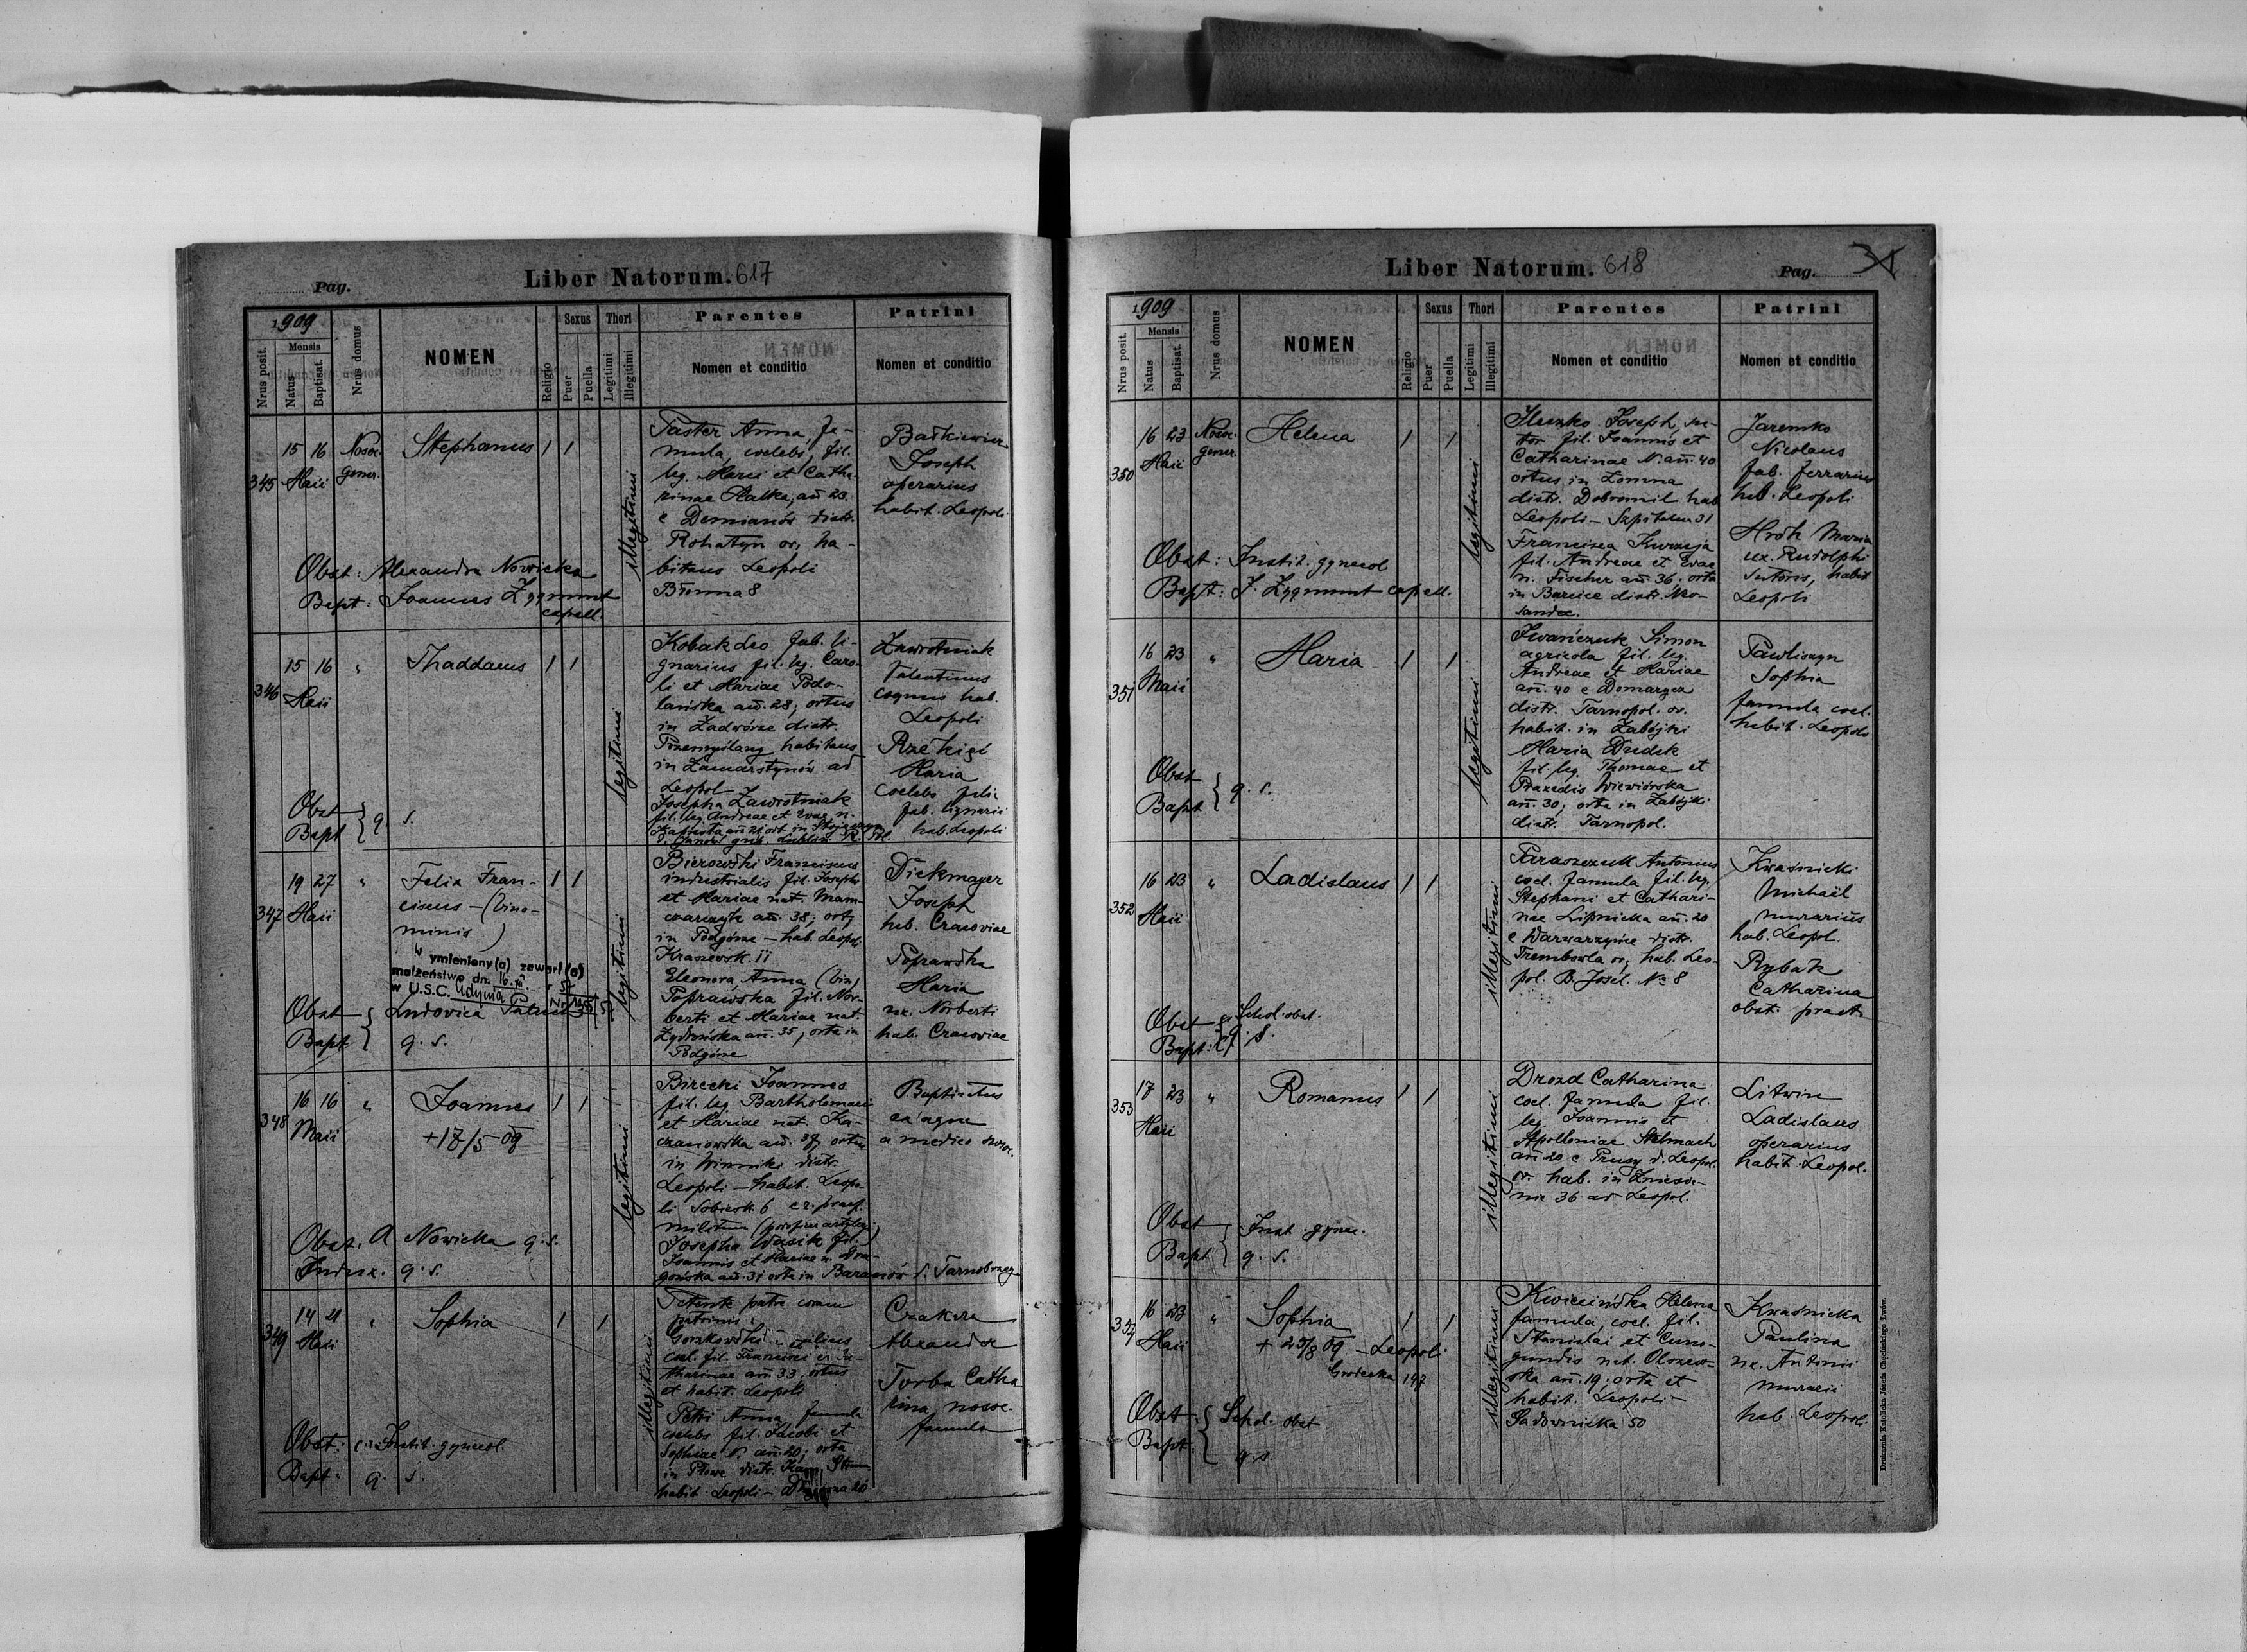 Pag.
Liber Natorum. 617
1909
Nrus posit.
Mensis
Natus
Baptisat.
Nrus domus
NOMEN
Religio
Sexus
Puer
Puella
Thori
Legitimi
Illegitimi
Parentes
Nomen et conditio
Patrini
Nomen et conditio
345
15 16
Maii
Nosoc.
gener.
Stephanus
1 1
illegitimi
Paster Anna, fa-
mula, coelebs, fil.
leg. Marci et Catha-
rinae Halka, añ 23
e Demianów distr.
Rohatyn or., ha-
bitans Leopoli
8
Joseph
operarius
habit. Leopoli
Obst: Alexandra Nowicka
Bapt: Joannes Zygmunt
capell.
346
15 16
Maii
"
Thaddaeus
1 1
legitimi
Kobak Leo fab. li-
gnarius fil. leg. Caro-
li et Mariae Podo-
lańska añ. 28, ortus
in Zadwórze distr.
Przemyślany habitans
in Zamarstynów ad
Leopol
Josepha Zawrotniak
fil. leg. Andreae et Evae n.
Kapusta
Zawrotniak
Valentinus
hab.
Leopoli
Maria
coelebs filia
fab. lignarii
hab. Leopoli
Obst
Bapt } q. s.
347
19 27
Maii
"
Felix Fran-
ciscus – (bino-
minis)
1 1
legitimi
Wymieniony(a) zawarł(a)
małżeństwo dn. 16.
w U.S.C. Gdynia Nr
Bierowski Franciscus
industrialis fil. Josephi
et Mariae nat. Mam-
czarczyk añ. 38, ort.
in Podgórze – hab. Leopol.
Kraszewsk. 11
Eleonora Anna (bin)
Poprawska fil. Nor-
berti et Mariae nat.
añ. 35, orta in
Podgórze
Diekmayer
Joseph
hab. Cracoviae
Poprawska
Maria
ux. Norberti
hab. Cracoviae
Obst { Ludovica
Bapt q. s.
348
16 16
Maii
"
Joannes
+ 17/5 09
1 1
legitimi
Birecki Joannes
fil. leg. Bartholomaei
et Mariae nat. Ka-
czanowska añ. 37 ortus
in Winniki distr.
Leopoli – habit. Leopo-
li Sobiesk. 6
militum
Josepha Wasik fil.
Joannis et Mariae n. Dra-
gońska añ. 31 orta in Baranów d. Tarnobrzeg
Baptisatus
ex aqua
a medico nosoc.
Obst. A Nowicka q. s.
q. s.
349
14 21
Maii
"
Sophia
1 1
illegitimi
Petente patre coram
patrinis:
Gorzkowski
coel. fil. Francisci et Ca-
tharinae añ 33, ortus
et habit. Leopoli
Petri Anna, famula
coelebs fil. Jacobi et
Sophiae N. añ. 20, orta
in
habit. Leopoli –
Alexander
Torba Catha
rina nosoc.
famula
Obst: Instit. gynecol.
Bapt: q. s.
Liber Natorum. 618
Pag.
1909
Nrus posit.
Mensis
Natus
Baptisat.
Nrus domus
NOMEN
Religio
Sexus
Puer
Puella
Thori
Legitimi
Illegitimi
Parentes
Nomen et conditio
Patrini
Nomen et conditio
350
16 23
Maii
Nosoc.
gener.
Helena
1 1
legitimi
Joseph, su-
tor fil. Joannis et
Catharinae N. añ. 40
ortus in Łomna
distr. Dobromil hab
Leopoli – Szpitalna 31
Francisca Kurzeja
fil. Andreae et Evae
n. Fischer añ. 36, orta
in Barcice distr. Neo-
sandec.
Jaremko
Nicolaus
fab. ferrarius
hab. Leopoli
Hroh Maria
ux. Rudolphi
sutoris, habit
Leopoli
Obst: Instit. gynecol
Bapt: J. Zygmunt capell.
351
16 23
Maii
"
Maria
1 1
legitimi
Iwańczuk Simon
agricola fil. leg.
Andreae et Mariae
añ. 40 e Domarycz
distr. Tarnopol. or.
habit. in Zabójki
Maria Dudek
fil. leg. Thomae et
Praxedis Wiewiórska
añ. 30, orta in Zabójki
distr. Tarnopol.
Pawliszyn
Sophia
famula coel.
habit. Leopoli
Obst
Bapt } q. s.
352
16 23
Maii
"
Ladislaus
1 1
illegitimi
Paraszczuk Antonina
coel. famula fil. leg.
Stephani et Cathari-
nae Lipnicka añ. 20
e Warwarzyńce distr.
Trembowla or, hab. Leo-
pol. B. Josel. No 8
Kwaśnicki
Michaël
murarius
hab. Leopol.
Rybak
Catharina
obst. pract.
Obst Schol. obst.
Bapt: q. s.
353
17 23
Maii
"
Romanus
1 1
illegitimi
Drozd Catharina
coel. famula fil.
leg. Joannis et
Apolloniae Stelmach
añ 20 e Prusy d. Leopol.
or. hab. in Zniesie-
nie 36 ad Leopol.
Litwin
Ladislaus
operarius
habit. Leopol.
Obst Inst. gynec.
Bapt q. s.
354
16 23
Maii
"
Sophia
+ 25/8 09 – Leopoli
Grodecka 197
1 1
illegitimi
Kwiecińska Helena
famula, coel. fil.
Stanislai et Cune-
gundis nat. Olszew-
ska añ. 19, orta et
habit. Leopoli –
Sadownicka 50
Kwaśnicka
Paulina
ux. Antonii
murarii
hab. Leopol.
Obst { Schol. obst
Bapt q. s.
Drukarnia Katolicka Józefa Chęcińskiego Lwów.